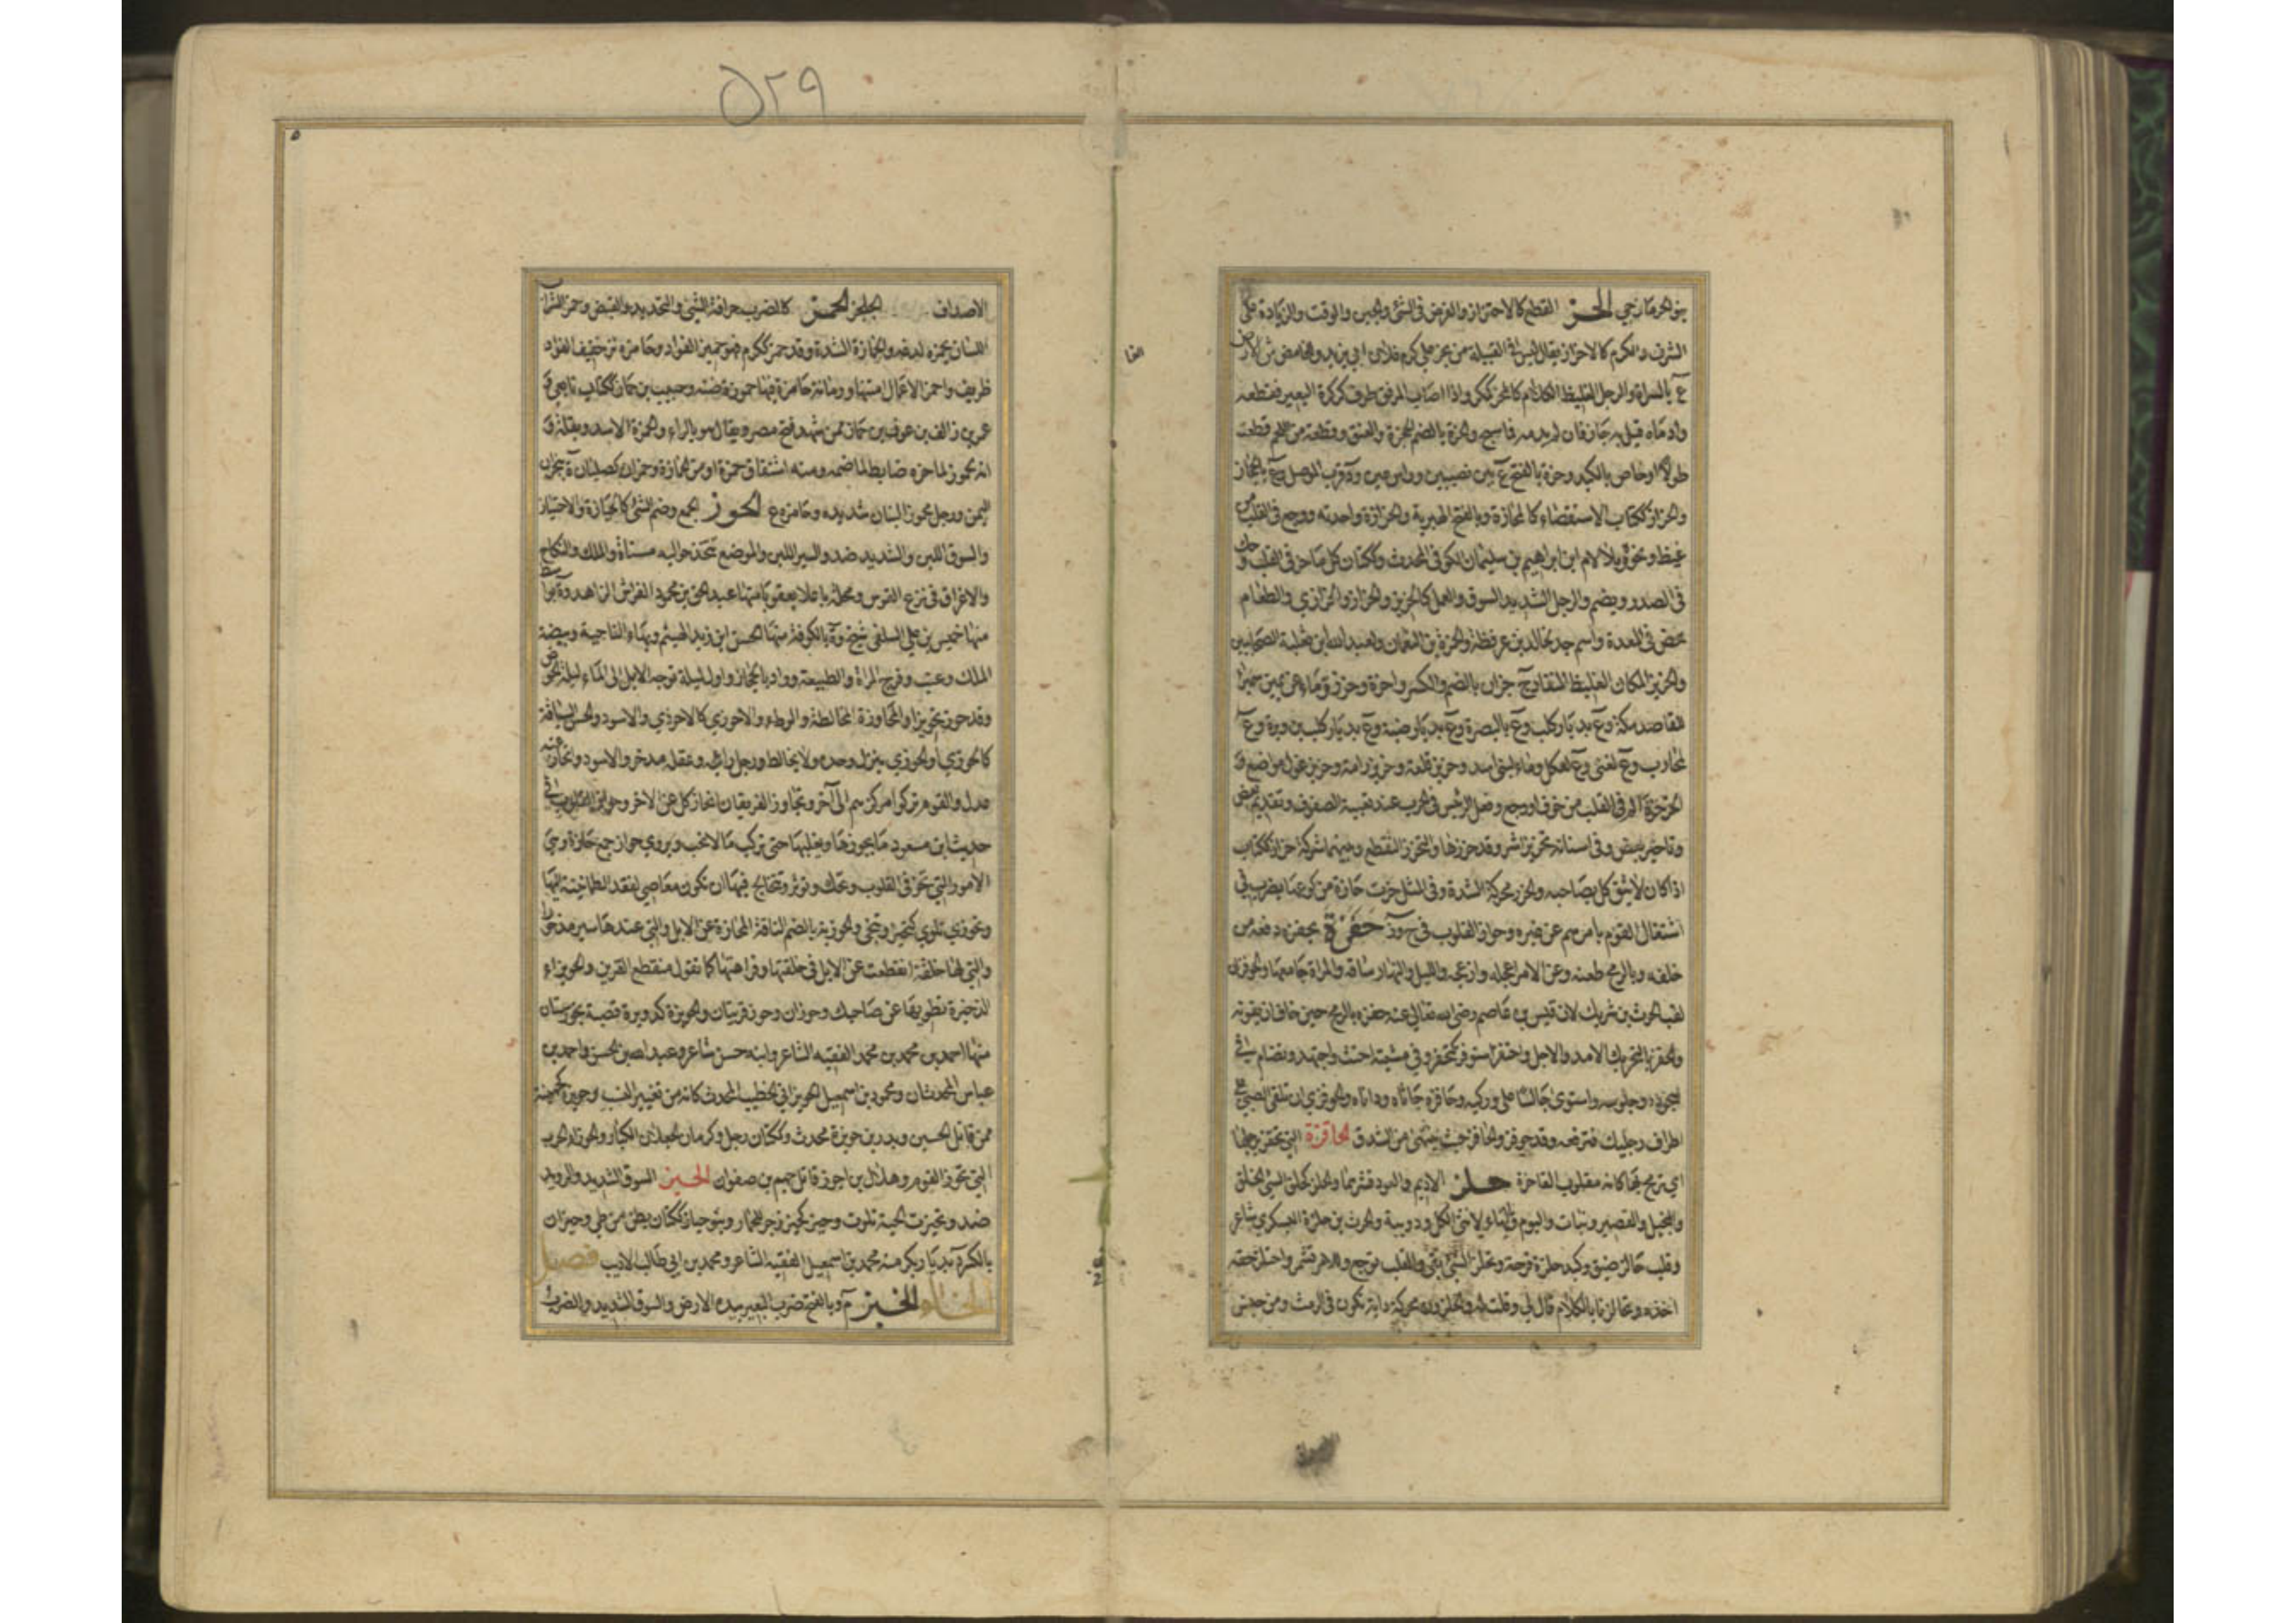 ٥٢٩
بنو الحرماز حي الحز القطع كالاحتزاز والفرض في الشئ والحين والوقت والزيادة على
الشرف والكرم كالاحزاز يقال ليس في القبيلة من يحز على كرم فلان اي يزيد والغامض من الارض
ع بالسراة والرجل الغليظ الكلام كالمحز ككر واذا اصاب المرفق طرف كركرة البعير فقطعه
وادماه قيل به حاز فان لم يدمه فماسح والحزة بالضم الحجزة والعنق وقطعة من اللحم قطعت
طولا او خاص بالكبد وحزة بالفتح ع بين نصيبين وراس عين وة قرب الموصل وع بالحجاز
والحزاز ككتاب الاستقصاء كالمحازة وبالفتح الهبرية والحزازة واحدته ووجع في القلب من
غيظ ونحوه وبلا لام ابن ابراهيم بن سليمان الكوفي المحدث وككتان كل ما حز في القلب وحك
في الصدر ويضم والرجل الشديد السوق والعمل كالحزيز والحزاز والحزازي والطعام
يحمض في المعدة واسم جد لخالد بن عرفطة ولحمزة بن النعمان ولعبد الله ابن ثعلبة الصحابيين
والحزيز المكان الغليظ المنقاد ج حزان بالضم والكسر واحزة وحزز وماء عن يمين سميراء
للقاصد مكة وع بديار كلب وع بالبصرة وع بديار ضبة وع بديار كلب بن وبرة وع
لمحارب وع لغني وع لعكل وماء لبني اسد وحزيز تلعة وحزيز رامة وحزيز غول مواضع و
الحزحزة الم في القلب من خوف او وجع وفعل الرئيس في الحرب عند تعبية الصفوف وتقديم بعض
وتاخير بعض وفي اسنانه تحزيز اشر وقد حززها والتحزز التقطع وبينهما شركة حزاز ككتاب
اذا كان لا يثق كل بصاحبه والحزز محركة الشدة وفي المثل حزت حازة من كوعها يضرب في
اشتغال القوم بامرهم عن غيره وحواز القلوب في ح وز حفزة يحفزه دفعه من
خلفه وبالرمح طعنه وعن الامر اعجله وازعجه والليل والنهار ساقه والمراة جامعها والحوفزان
لقب الحرث بن شريك لان قيس بن عاصم رضي الله تعالى عنه حفزه بالرمح حين خاف ان يفوته
والحفز بالتحريك الامد والاجل واحتفز استوفز كتحفز وفي مشيته احتث واجتهد وتضام في
سجوده وجلوسه واستوى جالسا على وركيه وحافزه جاثاه وداناه والحوفزي ان تلقي الصبي على
اطراف رجليك فترفعه وقد حوفز والحافز حيث ينثني من الشدق الحاقزة التي تحقز برجلها
اي ترمح بها كانه مقلوب القاحزة حلز الاديم والعود قشرهما والحلز كحلق السيئ الخلق
والبخيل والقصير ونبات والبوم والتاء لانثى الكل ودويبة والحرث بن حلزة اليشكري شاعر
وقلب حالز ضيق وكبد حلزة قرحة وتحلز الشئ بقي والقلب توجع وللامر تشمر واحتلز حقه
اخذه وتحالزنا بالكلام قال لي وقلت له والحلزون محركة دابة تكون في الرمث ومن جنس
الاصداف الجلحز الحمز كالضرب حرافة الشئ والتحديد والقبض وحمز الشراب
اللسان يحمزه لدغه والحمازة الشدة وقد حمز ككرم فهو حميز الفؤاد وحامزه نز خفيف الفؤاد
ظريف واحمز الاعمال امتنها ورمانة حامزة فيها حموزة وحبيب بن حماز ككتاب تابعي و
عمرو بن زالف بن عوف بن حماز ممن شهد فتح مصر ويقال هو بالراء والحمزة الاسد وبقلة و
انه لحموز لما حزه ضابط لما ضمه ومنه اشتقاق حمزة او من الحمازة وحمزان كصليان ة بنجران
اليمن ورجل محموز البنان شديده وحامز ع الحوز الجمع وضم الشئ كالحيازة والاحتياز
والسوق اللين والشديد ضد والسير اللين والموضع تتخذ حواليه مسناة والملك والنكاح
والاغراق في نزع القوس ومحلة باعلا بعقوبا منها عبد الحق بن محمود الفراش الزاهد وة بواسط
منها خميس بن علي السلفي شيخ وة بالكوفة منها الحسن ابن زيد الهيثم وبهاء الناحية وبيضة
الملك وعنب وفرج المراة والطبيعة وواد بالحجاز واول ليلة توجه الابل الى الماء ليلة الحوز
وقد حوز تحويزا والمحاوزة المخالطة والوطء والاحوزي كالاحوذي والاسود والحسن السياقة
كالحوزي او الحوزي ينزل وحده ولا يخالط ورجل رايه وعقله مدخر والاسود وانحاز عنه
عدل والقوم تركوا مركزهم الى آخر وتحاوز الفريقان انحاز كل عن الاخر وحواز القلوب في
حديث ابن مسعود ما يحوزها ويغلبها حتى تركب ما لا تحب ويروى حواز جمع حازة وهي
الامور التي تحز في القلوب وتحك وتؤثر وتخالج فيها ان تكون معاصي لفقد الطمانينة اليها
وتحوزي تلوي كتحيز وتنحى والحوزية بالضم الناقة المنحازة عن الابل والتي عندها سير مذخور
والتي لها خلفة انقطعت عن الابل في خلفتها وفراهتها كما تقول منقطع القرين والحويزاء
الذخيرة تطويها عن صاحبك وحوزان وحوز قريتان والحويزة كدويرة قصبة بخوزستان
منها احمد بن محمد بن محمد الفقيه الشاعر وابنه حسن شاعر وعبد الله بن الحسن واحمد بن
عباس المحدثان ومحمود بن اسمعيل الحويزاني الخطيب المحدث كانه من تغيير النسب وحويزة كجهينة
ممن قاتل الحسين وبدر بن حويزة محدث وككتان رجل وكرمان الجعلان الكبار والحوزاء الحرب
التي تحوز القوم وهلال بن احوز قاتل جهم بن صفوان الحيز السوق الشديد والرويد
ضد وتحيزت الحية تلوت وحيز حيز زجر للحمار وبنو حياز ككتان بطن من طي وحيزان
بالكسر ة بديار بكر منه محمد بن اسمعيل الفقيه الشاعر ومحمد بن ابي طالب الاديب فصل
الخاء الخبز م وبالفتح ضرب البعير بيده الارض والسوق الشديد والضرب